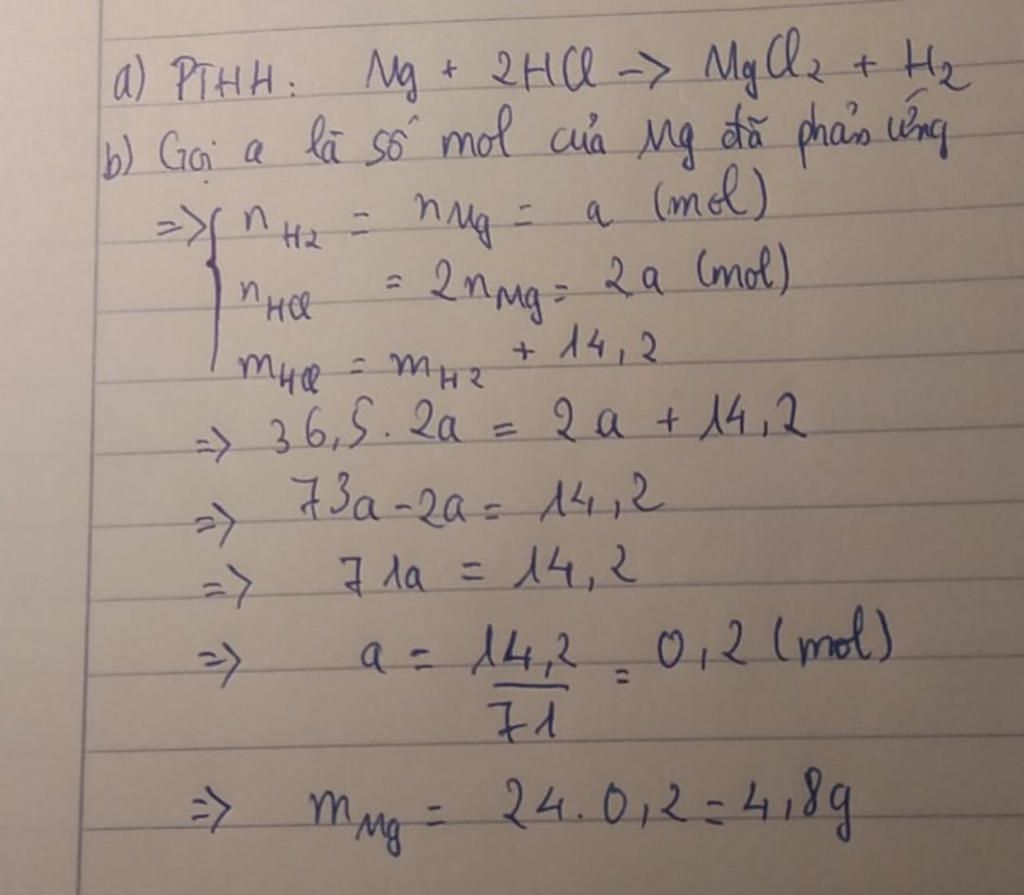 a) PTHH: Mg + 2HCl -> MgCl2 + H2
b) Gọi a là số mol của Mg đã phản ứng
=> { nH2 = nMg = a (mol)
nHCl = 2nMg = 2a (mol)
mHCl = mH2 + 14,2
=> 36,5. 2a = 2a + 14,2
=> 73a - 2a = 14,2
=> 71a = 14,2
=> a = 14,2/71 = 0,2 (mol)
=> mMg = 24. 0,2 = 4,8g